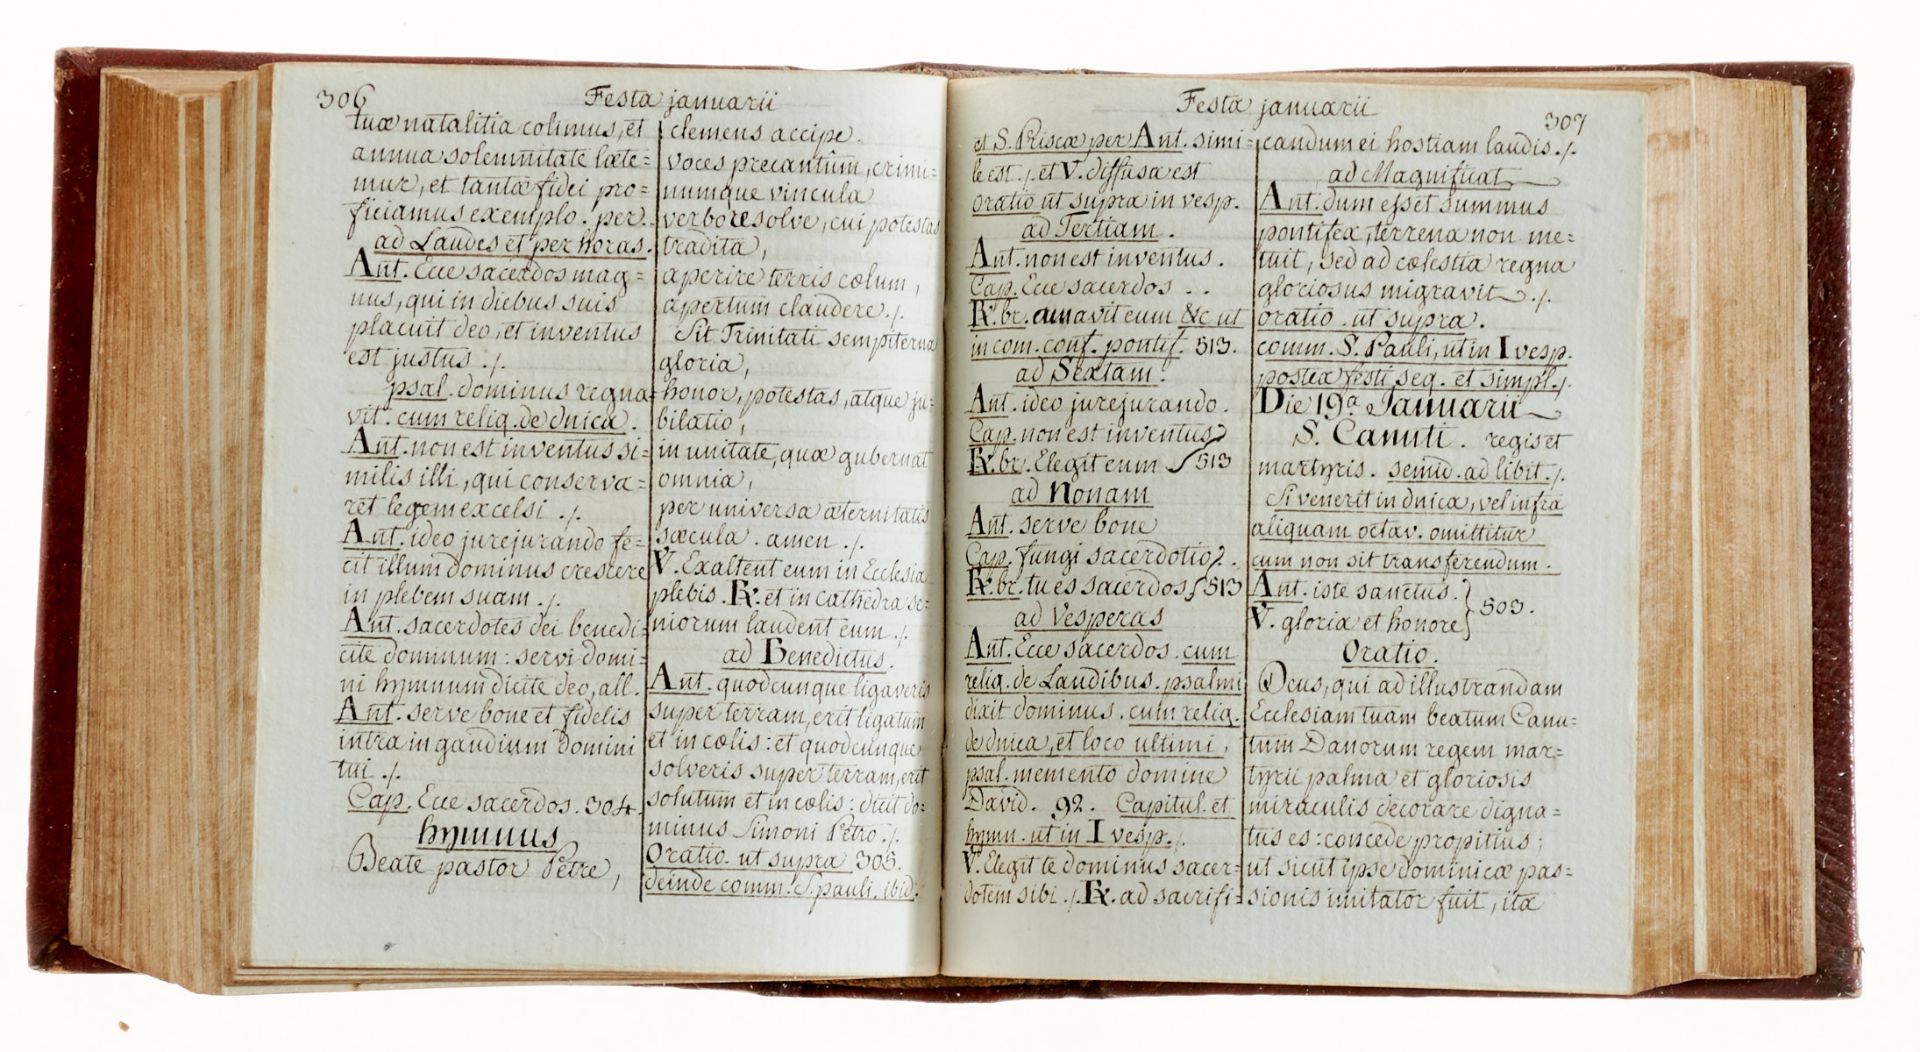 306
Festa januarii
tuæ natalitia colimus, et
annua solemnitate læte=
mur, et tantæ fidei pro=
ficiamus exemplo. per.
ad Laudes et per horas.
Ant. Ecce sacerdos mag=
nus, qui in diebus suis
placuit deo, et inventus
est justus ./.
psal. dominus regna=
vit. cum reliq. de dnica.
Ant. non est inventus si=
milis illi, qui conserva=
ret legem excelsi ./.
Ant. ideo jurejurando fe=
cit illum dominus crescere
in plebem suam ./.
Ant. sacerdotes dei benedi=
cite dominum: servi domi=
ni hymnum dicite deo, all.
Ant. serve bone et fidelis
intra in gaudium domini
tui ./.
Cap. Ecce sacerdos. 304.
hymnus
Beate pastor Petre,
clemens accipe.
voces precantûm, crimi=
numque vincula
verbo resolve, cui potestas
tradita,
aperire terris cœlum,
apertum claudere ./.
Sit Trinitati sempiterna
gloria,
honor, potestas, atque ju=
bilatio,
in unitate, quæ gubernat
omnia,
per universa æternitatis
sæcula. amen ./.
V. Exaltent eum in Ecclesia
plebis. ℟. et in cathedra se=
niorum laudent eum ./.
ad Benedictus.
Ant. quodcunque ligaveris
super terram, erit ligatum
et in cœlis: et quodcunque
solveris super terram, erit
solutum et in cœlis: dicit do=
minus Simoni Petro ./.
Oratio ut supra 305.
deinde comm. S. pauli. ibid.
Festa januarii
307
et S. Priscæ per Ant. simi=
le est ./. et V. diffusa est
oratio ut supra in vesp.
ad Tertiam.
Ant. non est inventus.
Cap. Ecce sacerdos ..
℟. br. amavit eum &c ut
in com. conf. pontif. 513.
ad Sextam.
Ant. ideo jurejurando.
Cap. non est inventus
℟. br. Elegit eum } 513
ad Nonam
Ant. serve bone
Cap. fungi sacerdotio
℟. br. tu es sacerdos } 513
ad Vesperas
Ant. Ecce sacerdos. cum
reliq. de Laudibus. psalmi
dixit dominus. cum reliq.
de dnica, et loco ultimi,
psal. memento domine
David. 92. Capitul. et
hymn. ut in I vesp./.
V. Elegit te dominus sacer=
dotem sibi ./. ℟. ad sacrifi=
candum ei hostiam laudis ./.
ad Magnificat
Ant. dum esset summus
pontifex, terrena non me=
tuit, sed ad cælestia regna
gloriosus migravit ./.
oratio. ut supra.
comm. S. Pauli, ut in I vesp.
postea festi seq. et simpl./.
Die 19ª Januarii
S. Canuti. regis et
martyris. semid. ad libit./.
Si venerit in dnica, vel infra
aliquam octav. omittitur
cum non sit transferendum.
Ant. iste sanctus.
V. gloria et honore } 503.
Oratio.
Deus, qui ad illustrandam
Ecclesiam tuam beatum Canu=
tum Danorum regem mar=
tyrii palma et gloriosis
miraculis decorare digna=
tus es: concede propitius;
ut sicut ipse dominicæ pas=
sionis imitator fuit, ita